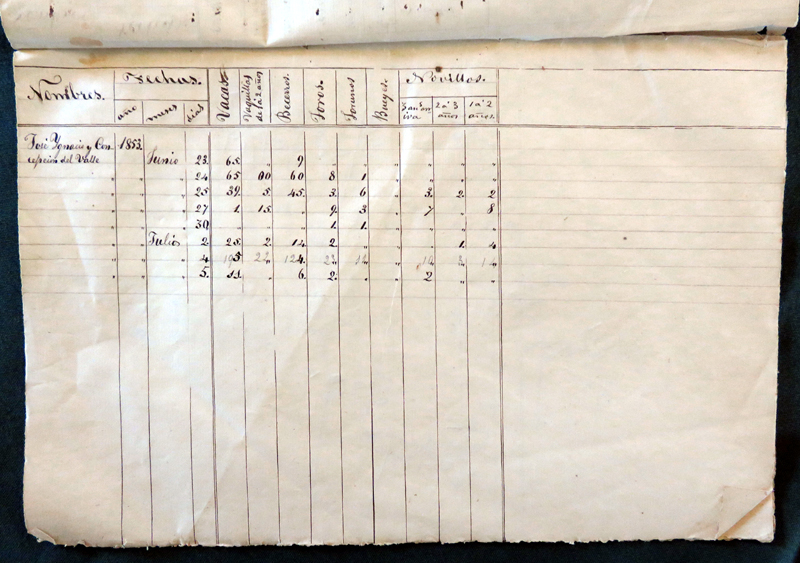 Nombres. Fechas. Vacas Vaquillas de 1 á 2 años Becerros. Toros. Torunos Bueyes. Novillos.
año meses días 3 an. arriva 2 á 3 años 1 á 2 años.
José Ygnacio y Con- 1853
cepcion del Valle Junio 23. 65. „ 9 „ „ „ „ „ „
„ „ „ 24 65 00 60 8 1 „ „ „ „
„ „ „ 25 39. 5. 45. 3. 6 „ 3. 2. 2
„ „ „ 27 1. 15. „ 9. 3. „ 7 „ 8
„ „ „ 30. „ „ „ 1. 1. „ „ „ „
„ „ Julio 2. 25. 2. 14. 2. „ „ „ 1. 4
„ „ „ 4 5 „ 4. „ „ „ „ „ „
195 22 124. 23 14 3
„ „ „ 5. 11. „ 6. 2. „ „ 2 „ „